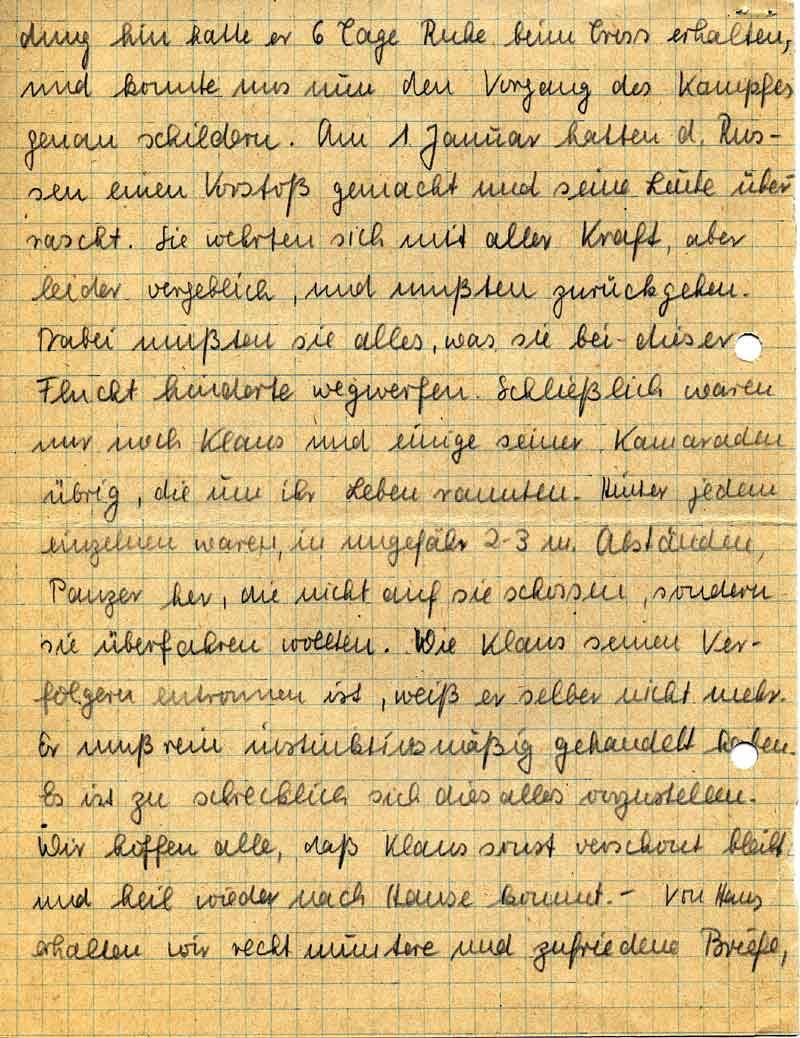 dung hin hatte er 6 Tage Ruhe beim Tross erhalten,
und konnte uns nun den Vorgang des Kampfes
genau schildern. Am 1. Januar hatten d. Rus-
sen einen Vorstoß gemacht und seine Leute über
rascht. Sie wehrten sich mit aller Kraft, aber
leider vergeblich, und mußten zurückgehen.
Dabei mußten sie alles, was sie bei dieser
Flucht hinderte wegwerfen. Schließlich waren
nur noch Klaus und einige seiner Kamaraden
übrig, die um ihr Leben rannten. Hinter jedem
einzelnen waren, in ungefähr 2-3 m. Abständen,
Panzer her, die nicht auf sie schossen, sondern
sie überfahren wollten. Wie Klaus seinen Ver-
folgern entronnen ist, weiß er selber nicht mehr.
Er muß rein instinktivsmäßig gehandelt haben.
Es ist zu schrecklich sich dies alles vorzustellen.
Wir hoffen alle, daß Klaus sonst verschont bleibt
und heil wieder nach Hause kommt. – Von Hans
erhalten wir recht muntere und zufriedene Briefe,